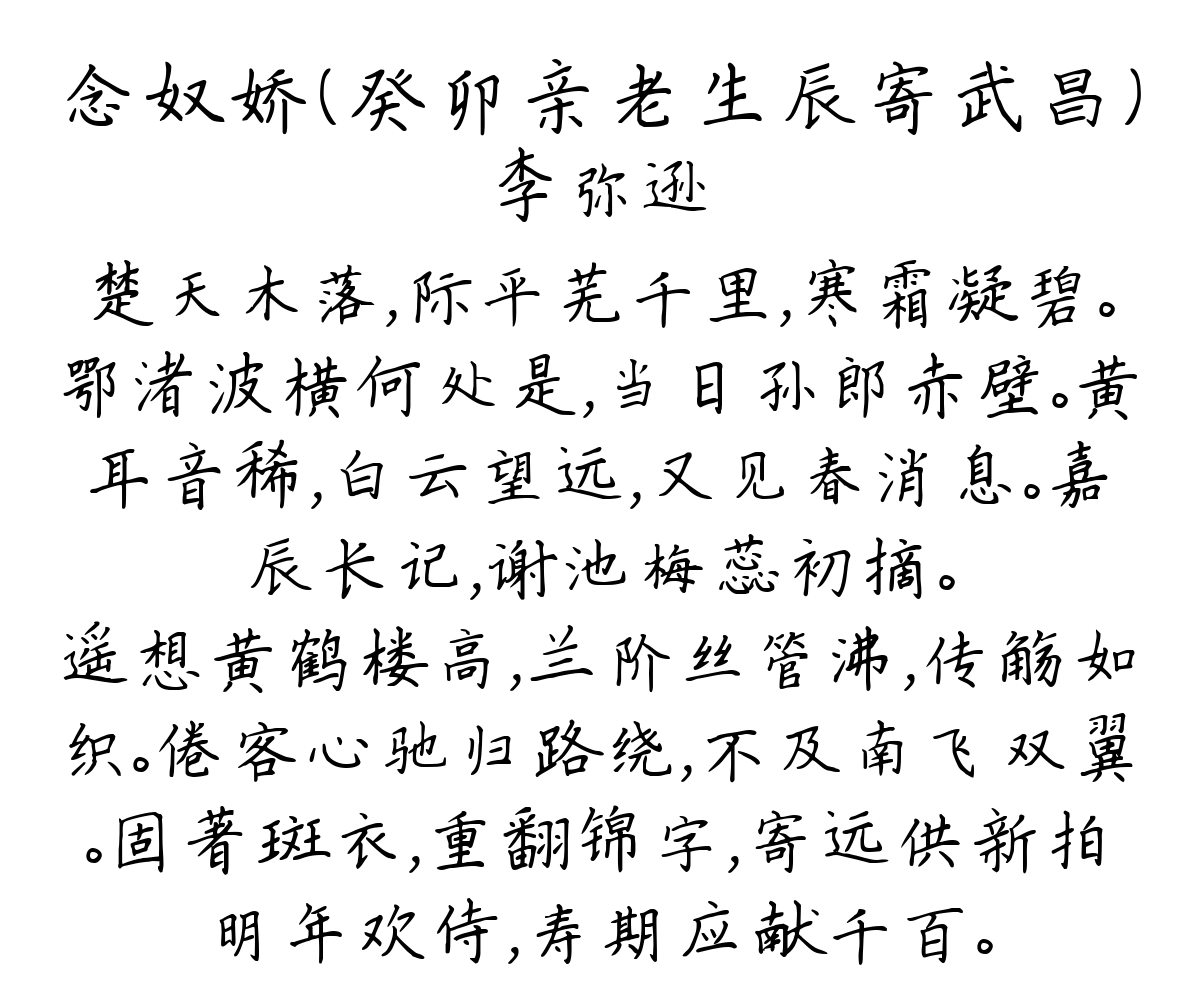 念奴娇(癸卯亲老生辰寄武昌)
李弥逊
楚天木落,际平芜千里,寒霜凝碧。
鄂渚波横何处是,当日孙郎赤壁。黄
耳音稀,白云望远,又见春消息。嘉
辰长记,谢池梅蕊初摘。
遥想黄鹤楼高,兰阶丝管沸,传觞如
织。倦客心驰归路绕,不及南飞双翼
。固著斑衣,重翻锦字,寄远供新拍
明年欢侍,寿期应献千百。